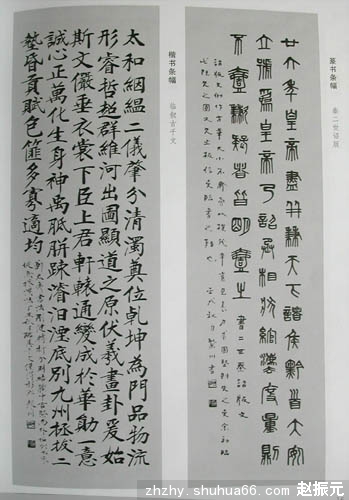 篆书条幅
秦二世诏版
廿六年皇帝盡并兼天下諸侯黔首大安
立號為皇帝乃詔丞相狀綰灋度量則
不壹歉疑者皆明壹之
楷书条幅
临叙古千文
太和絪緼二儀肇分清濁奠位乾坤為門品物流
形睿哲超群維河出圖顯道之原伏羲畫卦爰始
斯文儼垂衣裳下臣上君軒轅通變成於華勛一意
誠心正萬化生身神禹胝胼疎濬汨湮底別九州拯拔二
墊昏貢賦色篚多寡適均
zhzhy.shuhua66.com 赵振元